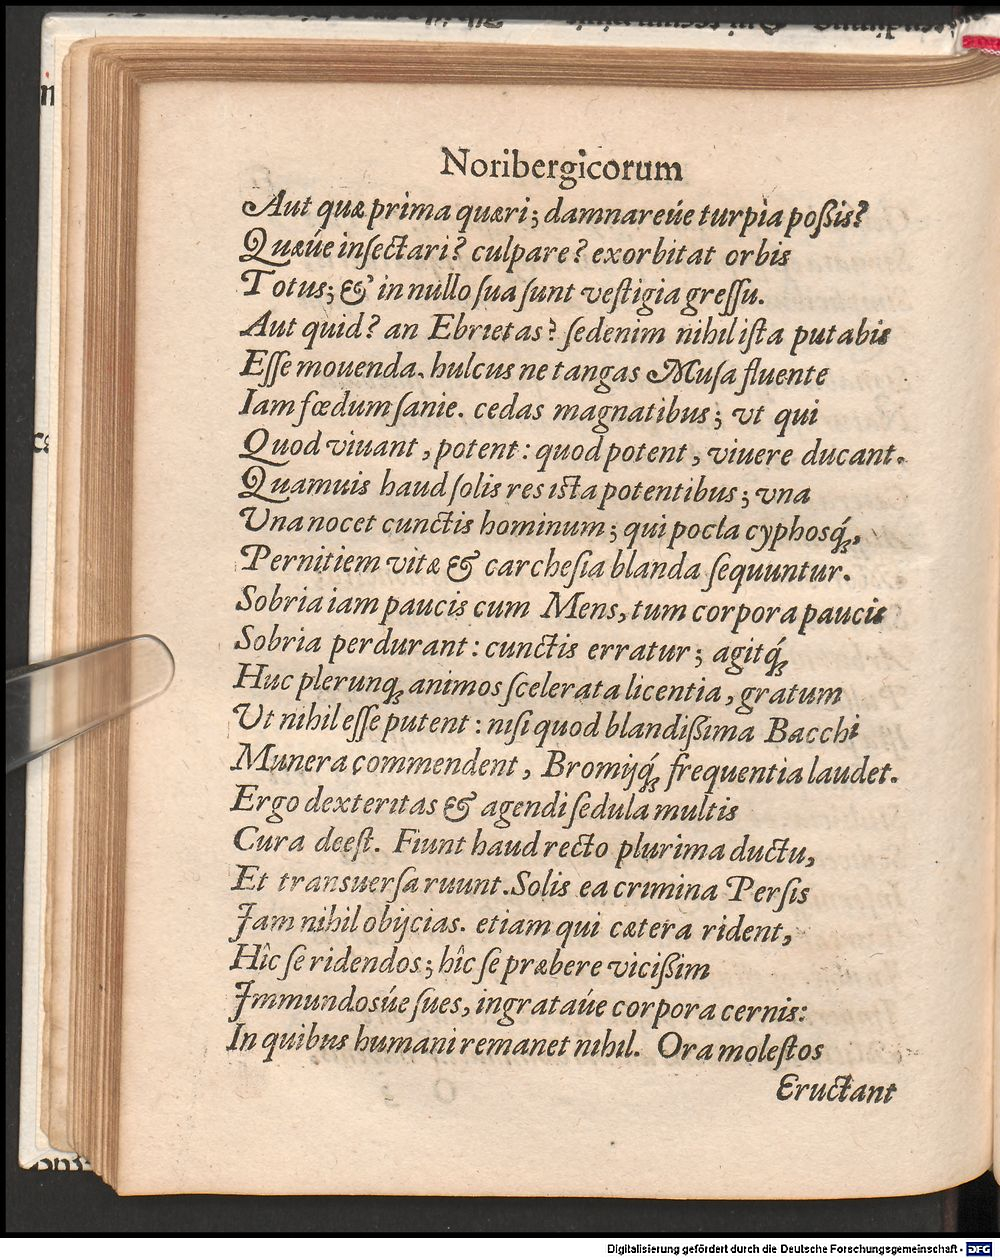 Noribergicorum
Aut quæ prima quæri; damnareúe turpia poßis?
Quæúe inſectari? culpare? exorbitat orbis
Totus; & in nullo ſua ſunt veſtigia greſſu.
Aut quid? an Ebrietas? ſed enim nihil iſta putabis
Eſſe mouenda. hulcus ne tangas Muſa fluente
Iam fœdum ſanie. cedas magnatibus; vt qui
Quod viuant, potent: quod potent, viuere ducant.
Quamuis haud ſolis res ista potentibus; vna
Vna nocet cunctis hominum; qui pocla cyphosq́;,
Pernitiem vitæ & carcheſia blanda ſequuntur.
Sobria iam paucis cum Mens, tum corpora paucis
Sobria perdurant: cunctis erratur; agitq́;
Huc plerunq; animos ſcelerata licentia, gratum
Vt nihil eſſe putent: niſi quod blandißima Bacchi
Munera commendent, Bromijq́; frequentia laudet.
Ergo dexteritas & agendi ſedula multis
Cura deeſt. Fiunt haud recto plurima ductu,
Et transuerſa ruunt. Solis ea crimina Perſis
Jam nihil obijcias. etiam qui cætera rident,
Hîc ſe ridendos; hîc ſe præbere vicißim
Jmmundosúe ſues, ingrataúe corpora cernis:
In quibus humani remanet nihil. Ora moleſtos
Eructant
Digitalisierung gefördert durch die Deutsche Forschungsgemeinschaft - DFG